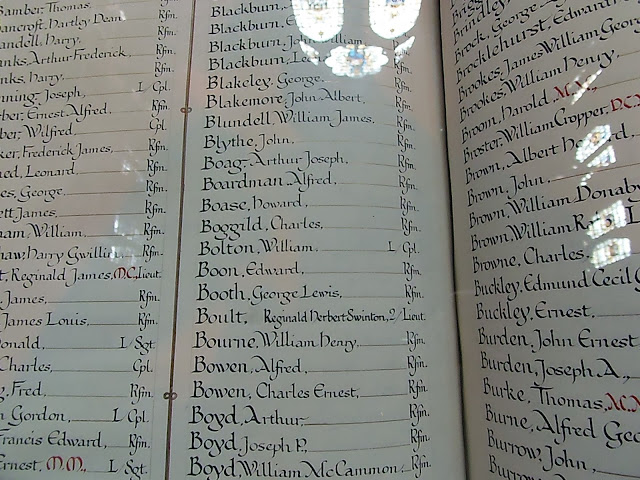 Bamber, Thomas,
Hartley Dean Rfn.
Harry, Rfn.
Arthur Frederick, Rfn.
Harry, Rfn.
Joseph, L Cpl.
Ernest Alfred, Rfn.
Wilfred, Cpl.
Frederick James, Rfn.
Leonard, Rfn.
George, Rfn.
James, Rfn.
William, Rfn.
Harry Rfn.
Reginald James, M.C., Lieut.
James, Rfn.
James Louis, Rfn.
L/Sgt
Charles, Cpl.
Fred, Rfn.
Gordon, L Cpl.
Francis Edward, Rfn.
Ernest, M.M., L Sgt.
Blackburn,
Blackburn,
Blackburn, John William,
Blackburn,
Blakeley, George, Rfn.
Blakemore, John Albert, Rfn.
Blundell, William James, Rfn.
Blythe, John, Rfn.
Boag, Arthur Joseph, Rfn.
Boardman, Alfred, Rfn.
Boase, Howard, Rfn.
Boggild, Charles, Rfn.
Bolton, William, L Cpl.
Boon, Edward, Rfn.
Booth, George Lewis, Rfn.
Boult, Reginald Herbert Swinton, 2/Lieut.
Bourne, William Henry, Rfn.
Bowen, Alfred, Rfn.
Bowen, Charles Ernest, Rfn.
Boyd, Arthur, Rfn.
Boyd, Joseph P., Rfn.
Boyd, William McCammon, Rfn.
Brindley,
Brock, George
Brocklehurst, Edward
Brookes, James William George
Brookes, William Henry,
Broom, Harold, M.M.,
Broster, William Cropper, D.C.
Brown, Albert
Brown, John,
Brown, William
Brown, William
Browne, Charles,
Buckley, Edmund Cecil G
Buckley, Ernest,
Burden, John Ernest
Burden, Joseph A.,
Burke, Thomas, M.M.
Burne, Alfred Geo
Burrow, John,